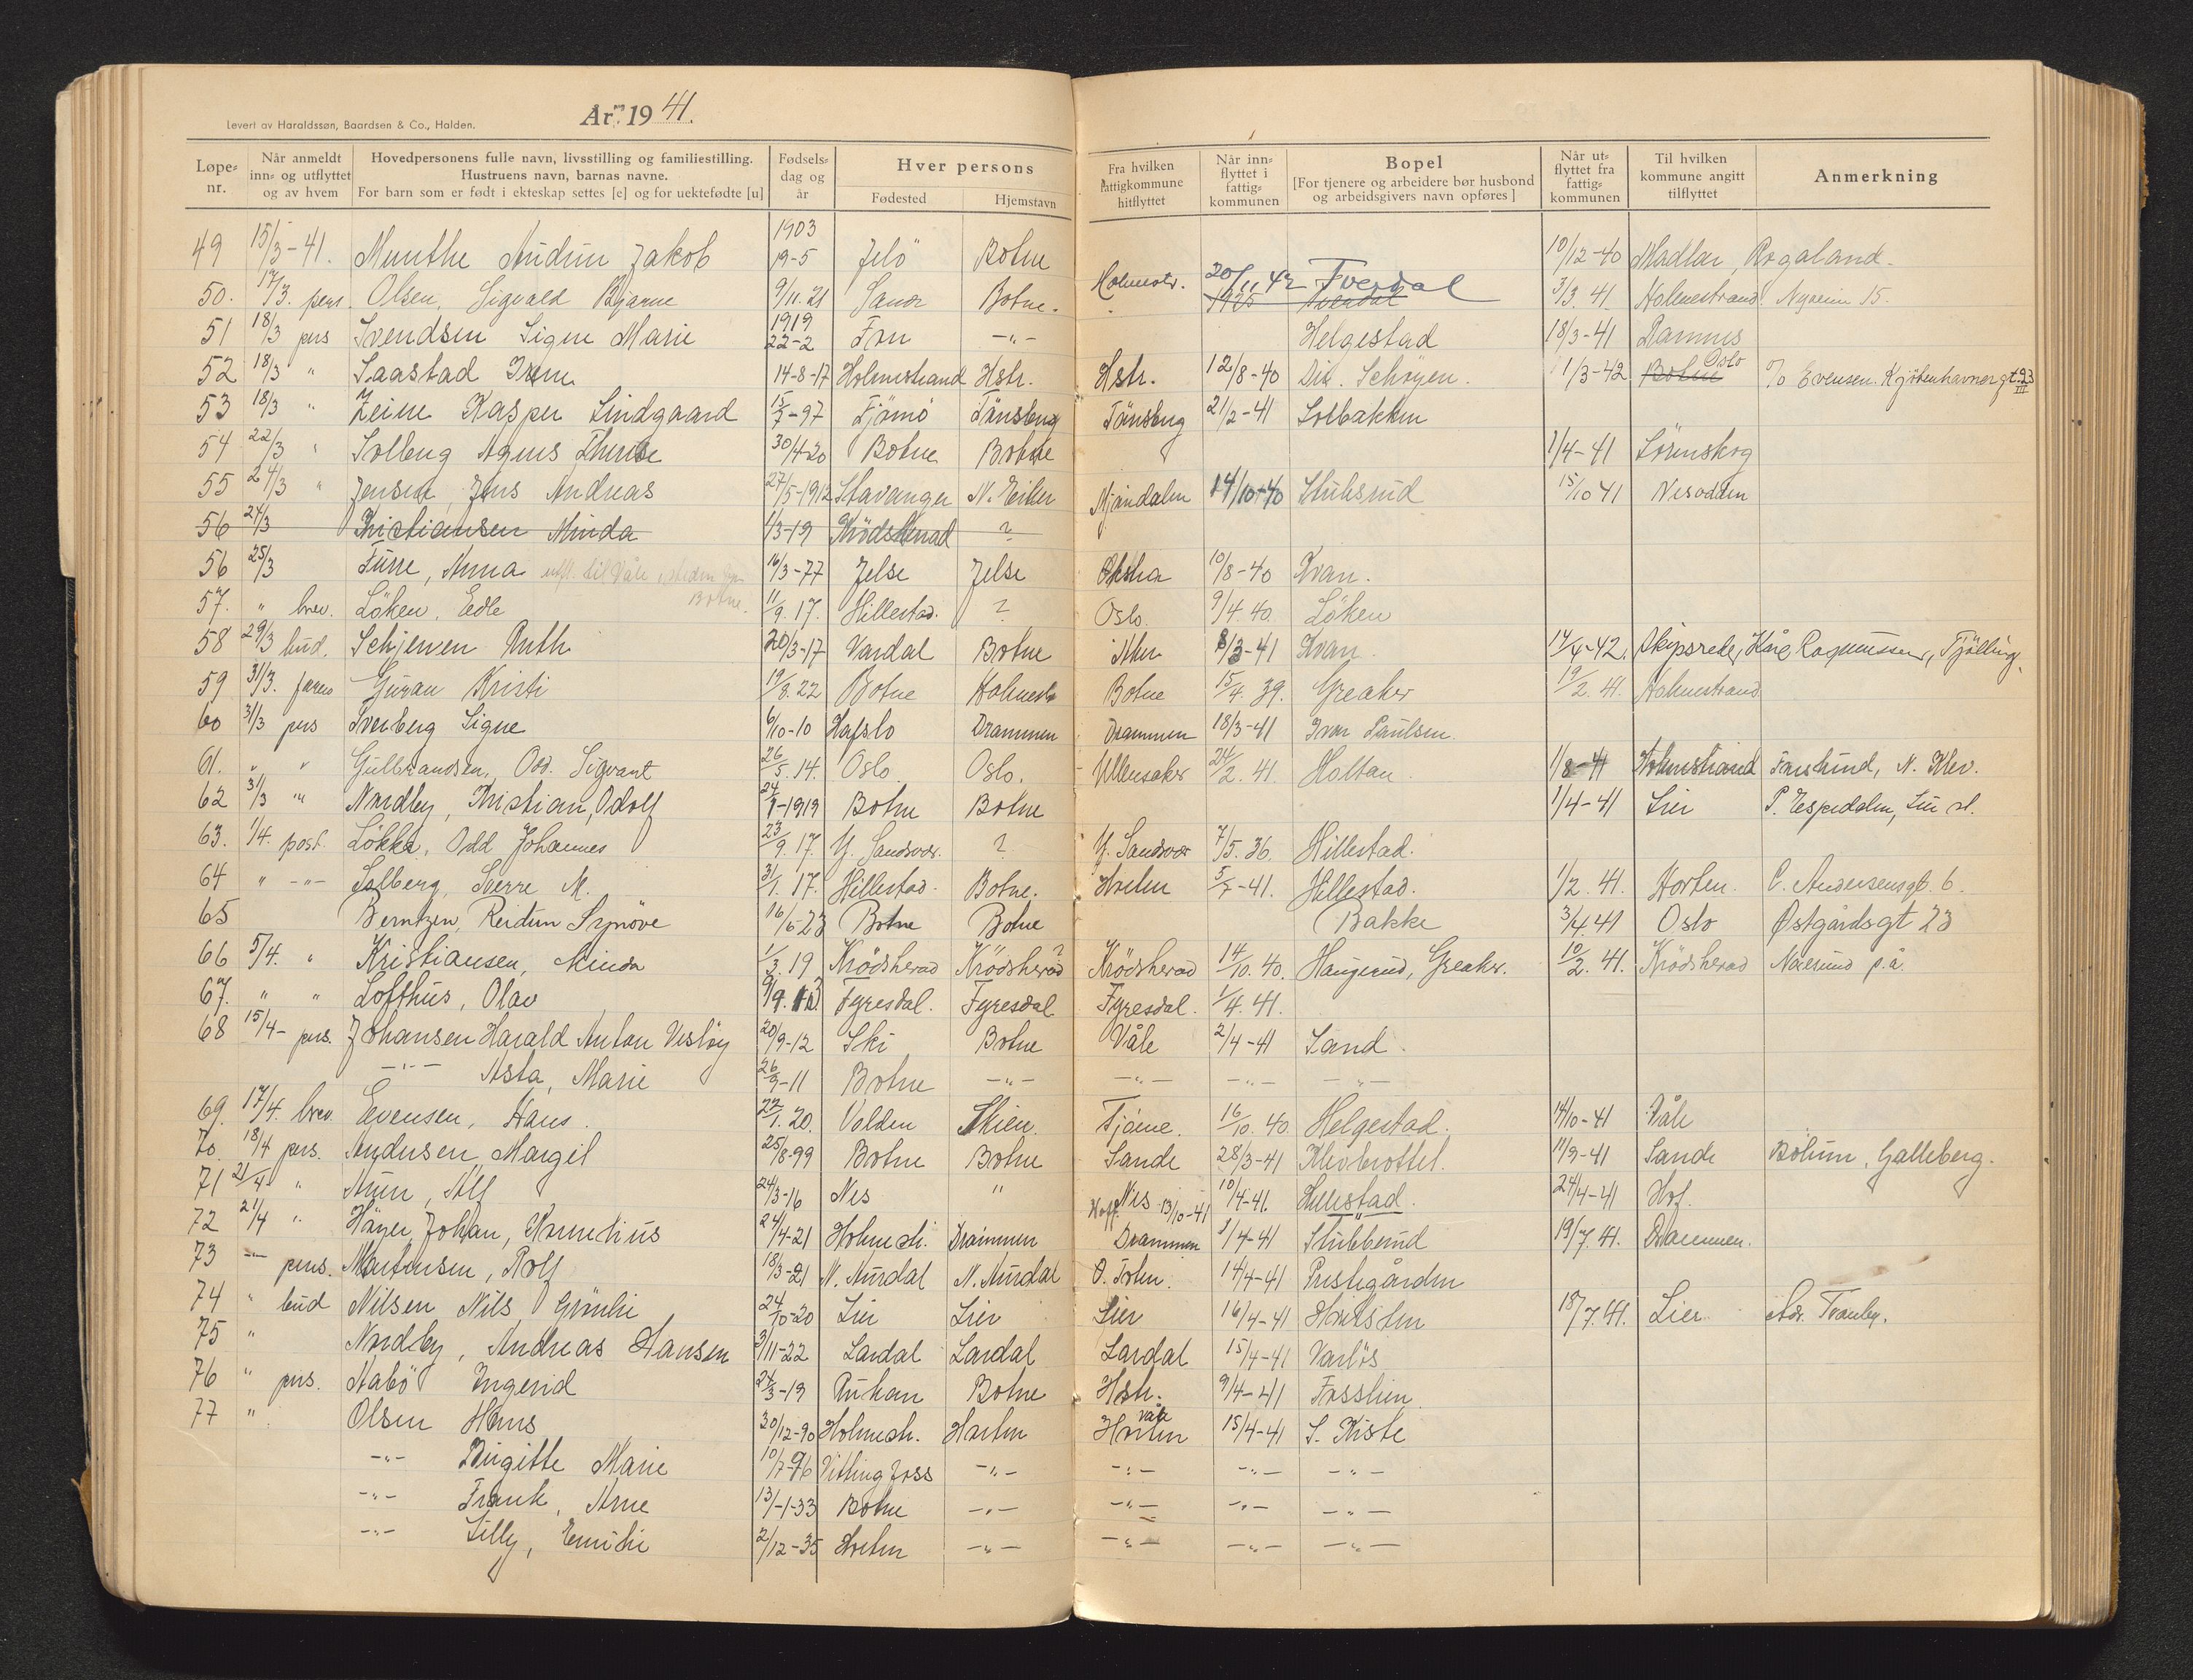 Levert av Haraldssøn, Baardsen & Co., Halden.
År 1941.
Løpe-nr. Når anmeldt inn- og utflyttet og av hvem Hovedpersonens fulle navn, livsstilling og familiestilling. Hustruens navn, barnas navne. For barn som er født i ekteskap settes [e] og for uektefødte [u] Fødsels-dag og år Hver persons Fødested Hjemstavn Fra hvilken fattigkommune hitflyttet Når inn-flyttet i fattig-kommunen Bopel [For tjenere og arbeidere bør husbond og arbeidsgivers navn opføres] Når ut-flyttet fra fattig-kommunen Til hvilken kommune angitt tilflyttet Anmerkning
49 15/3-41. Munthe Audun Jakob 1903 19-5 Jelö Botne 10/12-40 Madlar, Rogaland.
50. 17/3. pers. Olsen, Sigvald Bjarne 9/11.21 Sande Botne. Holmestr. 20/11 42 Tverdal 1925 Tverdal 3/3.41 Holmestrand Nyveien 15.
51 18/3 pers Svendsen Signe Marie 1919 22-2 Fon -"- Helgestad 18/3-41 Ramnes
52 18/3 " Saastad Irene 14-8-17 Holmestrand Hstr. Hstr. 12/8-40 Dis. Schøyen. 1/3-42 Botne Oslo c/o Evensen. Kjøbenhavnergt. 93 III
53 18/3 " Zeine Kasper Lindgaard 15/7-97 Tjömö Tönsberg Tönsberg 21/2-41 Solbakken
54 22/3 " Solberg Agnes Therese 30/4-20 Botne Botne 1/4-41 Lörenskog
55 24/3 " Jensen, Jens Andreas 27/5-1912 Stavanger N. Eiker Mjöndalen 14/10-40 Stuhsrud 15/10 41 Nesodden
56 24/3 Kristiansen Minda 1/3-19 Krödsherad ?
56 25/3 Furre, Anna utfl. til Våle isteden for Botne. 16/3-77 Jelse Jelse Oksha 10/8-40 Kvan.
57. " brev. Löken, Edle 11/9.17. Hillestad. ? Oslo. 9/4.40. Löken
58 29/3 bud. Schjerven Ruth 20/3-17 Vardal Botne Vkm 8/3-41 Kvan. 14/4-42. Skipsreder Kåre Rasmussen, Tjölling.
59 31/3. faren Guran Kristi 19/8.22 Botne Holmestr Botne 15/4.39. Greaker 19/2.41. Holmestrand
60 31/3 pers Sverberg Signe 6/10-10 Hafslo Drammen Drammen 18/3-41 Ivar Paulsen.
61. " " Gulbrandsen, Odd. Sigvart 26/5.14. Oslo Oslo. Ullensaker 24/2.41. Holtan. 1/8-41 Holmestrand Fourlund, N. Klev.
62 31/3 " Nordby, Kristian, Adolf 24/9-1919 Botne Botne 1/4-41 Lier P. Espedalen, Lier st.
63. 1/4. post. Lökka, Odd Johannes 23/9.17. Y. Sandsvær. ? Y. Sandsvær 7/5.36. Hillestad.
64 " -"- Solberg, Sverre M. 31/1.17. Hillestad. Botne. Horten 5/7-41. Hillestad. 1/2.41. Horten. C. Andersensgt. 6.
65 Berntzen, Reidun Synöve 16/6-23 Botne Botne Bakke 3/4.41 Oslo Østgårdsgt 23
66 5/4. " Kristiansen, Minda 1/3.19 Krödsherad Krödsherad? Krödsherad 14/10.40. Haugerud, Greaker. 10/2.41. Krödsherad Noresund p.å.
67. " " Lofthus, Olav 9/9.13 Fyresdal. Fyresdal Fyresdal. 1/4.41.
68 15/4- pers. Johansen Harald Anton Vislöy 20/9-12 Ski Botne Våle 2/4-41 Sand.
-"- Asta, Marie 26/9-11 Botne -"- -"- -"- -"-
69. 17/4. brev Evensen, Hans. 22/1.20. Volden Skien. Tjöme. 16/10.40. Helgestad. 14/10-41 Våle
70. 18/4 pers. Andersen Margit 25/8-99 Botne Botne Sande 28/3-41 Klevbrottet. 11/9-41 Sande Böhum, Galleberg.
71 21/4 " Aunn, Alf 24/3-16 Nes " Nes Hoff. 13/10-41 10/4-41. Hillestad. 24/4-41 Hof.
72 21/4 " Höyer, Johan, Kornelius 24/4-21 Holmestr. Drammen Drammen 1/4-41 Stubberud 19/7.41. Drammen.
73 -"- pers. Martinsen, Rolf 18/3-21 N. Aurdal N. Aurdal Ö. Toten. 14/4-41 Prestegården
74 " bud Nilsen Nils Grönlie 24/10-20 Lier Lier Lier 16/4-41 Holtsten 18/7.41. Lier Adr. Tranby.
75 " Nordby, Andreas Hansen 3/11-22 Lardal Lardal Lardal 15/4-41 Varlös
76 " pers. Stabö Ingerid 24/3-19 Rukan Botne Hstr. 9/4-41 Fosslien
77 " Olsen Hans 30/12-90 Holmestr. Horten Horten Våle 15/4-41 S. Kiste
-"- Birgitte Marie 10/7-96 Vittingfoss -"- -"- -"- -"-
-"- Frank, Arne 13/-1-33 Botne -"- -"- -"- -"-
-"- Lilly, Emilie 2/12-35 Horten -"- -"- -"- -"-